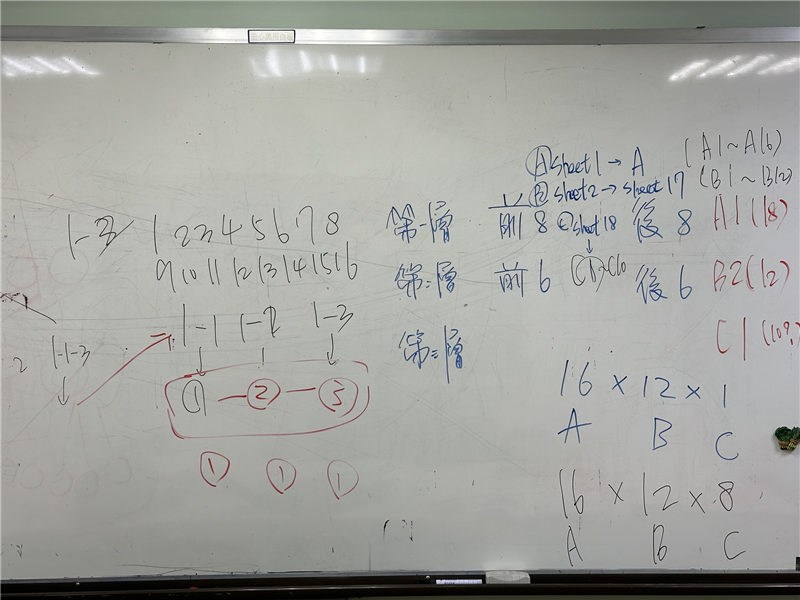 Ⓐ sheet 1 → A (A1~A16)
Ⓑ sheet 2 → sheet 17 (B1~B12)
Ⓒ sheet 18
↓
C1~C10
1-2 1 2 3 4 5 6 7 8 第一層 前 8 後 8 A1 (18)
9 10 11 12 13 14 15 16 第二層 前 6 後 6 B2 (12)
1-1 1-2 1-3 第三層 C1 (10?)
2 1-1-3
① — ② — ③
① ① ①
16 × 12 × 1
A B C
16 × 12 × 8
A B C